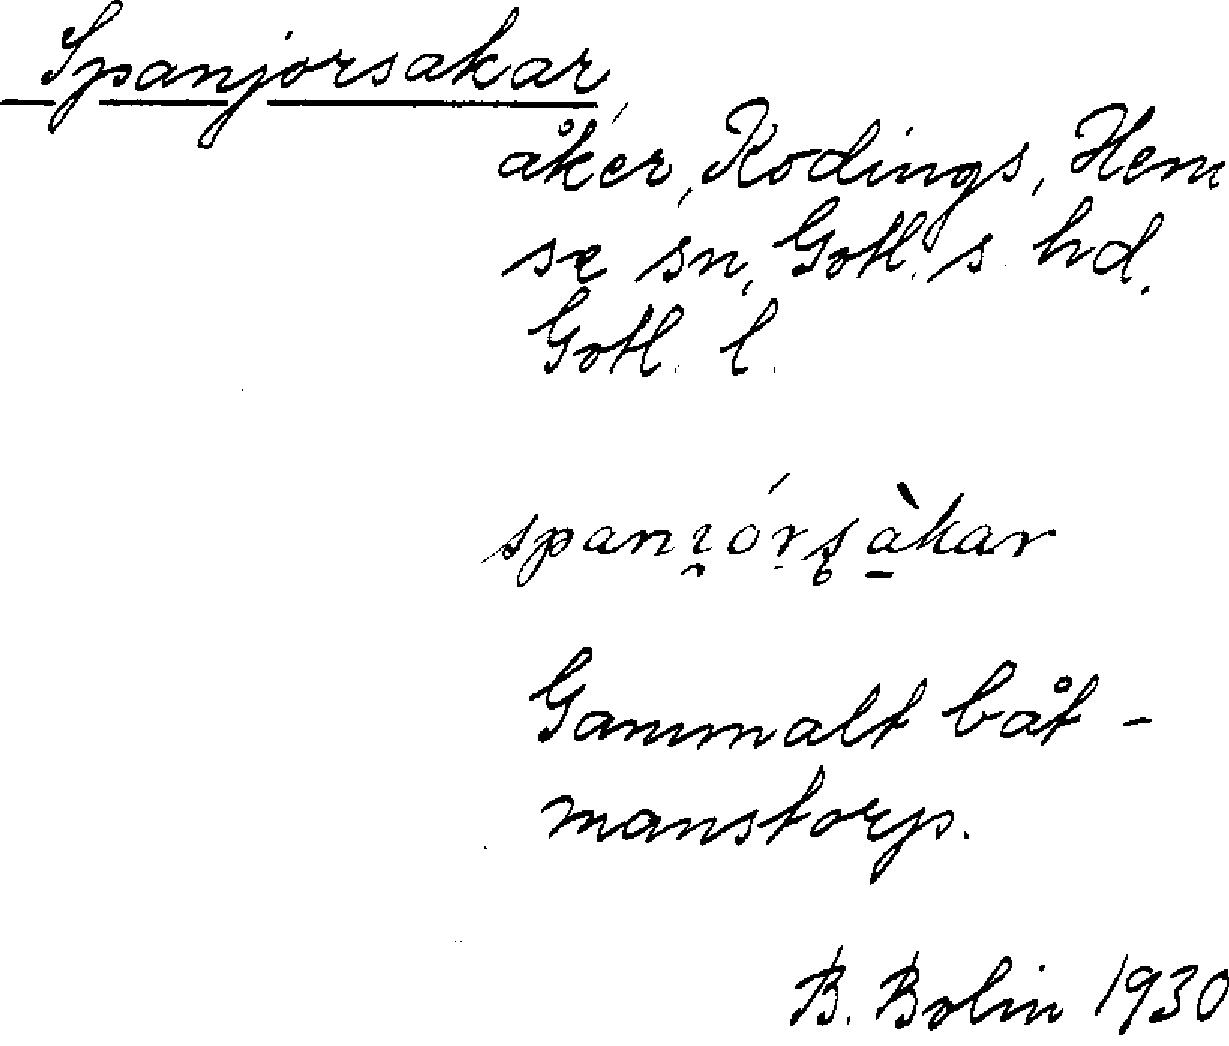 Spanjorsakar,
åker, Kodings, Hem
se sn, Gotl. s hd.
Gotl. l.
spanı̯órs̥àkar
Gammalt båt-
manstorp.
B. Bolin 1930